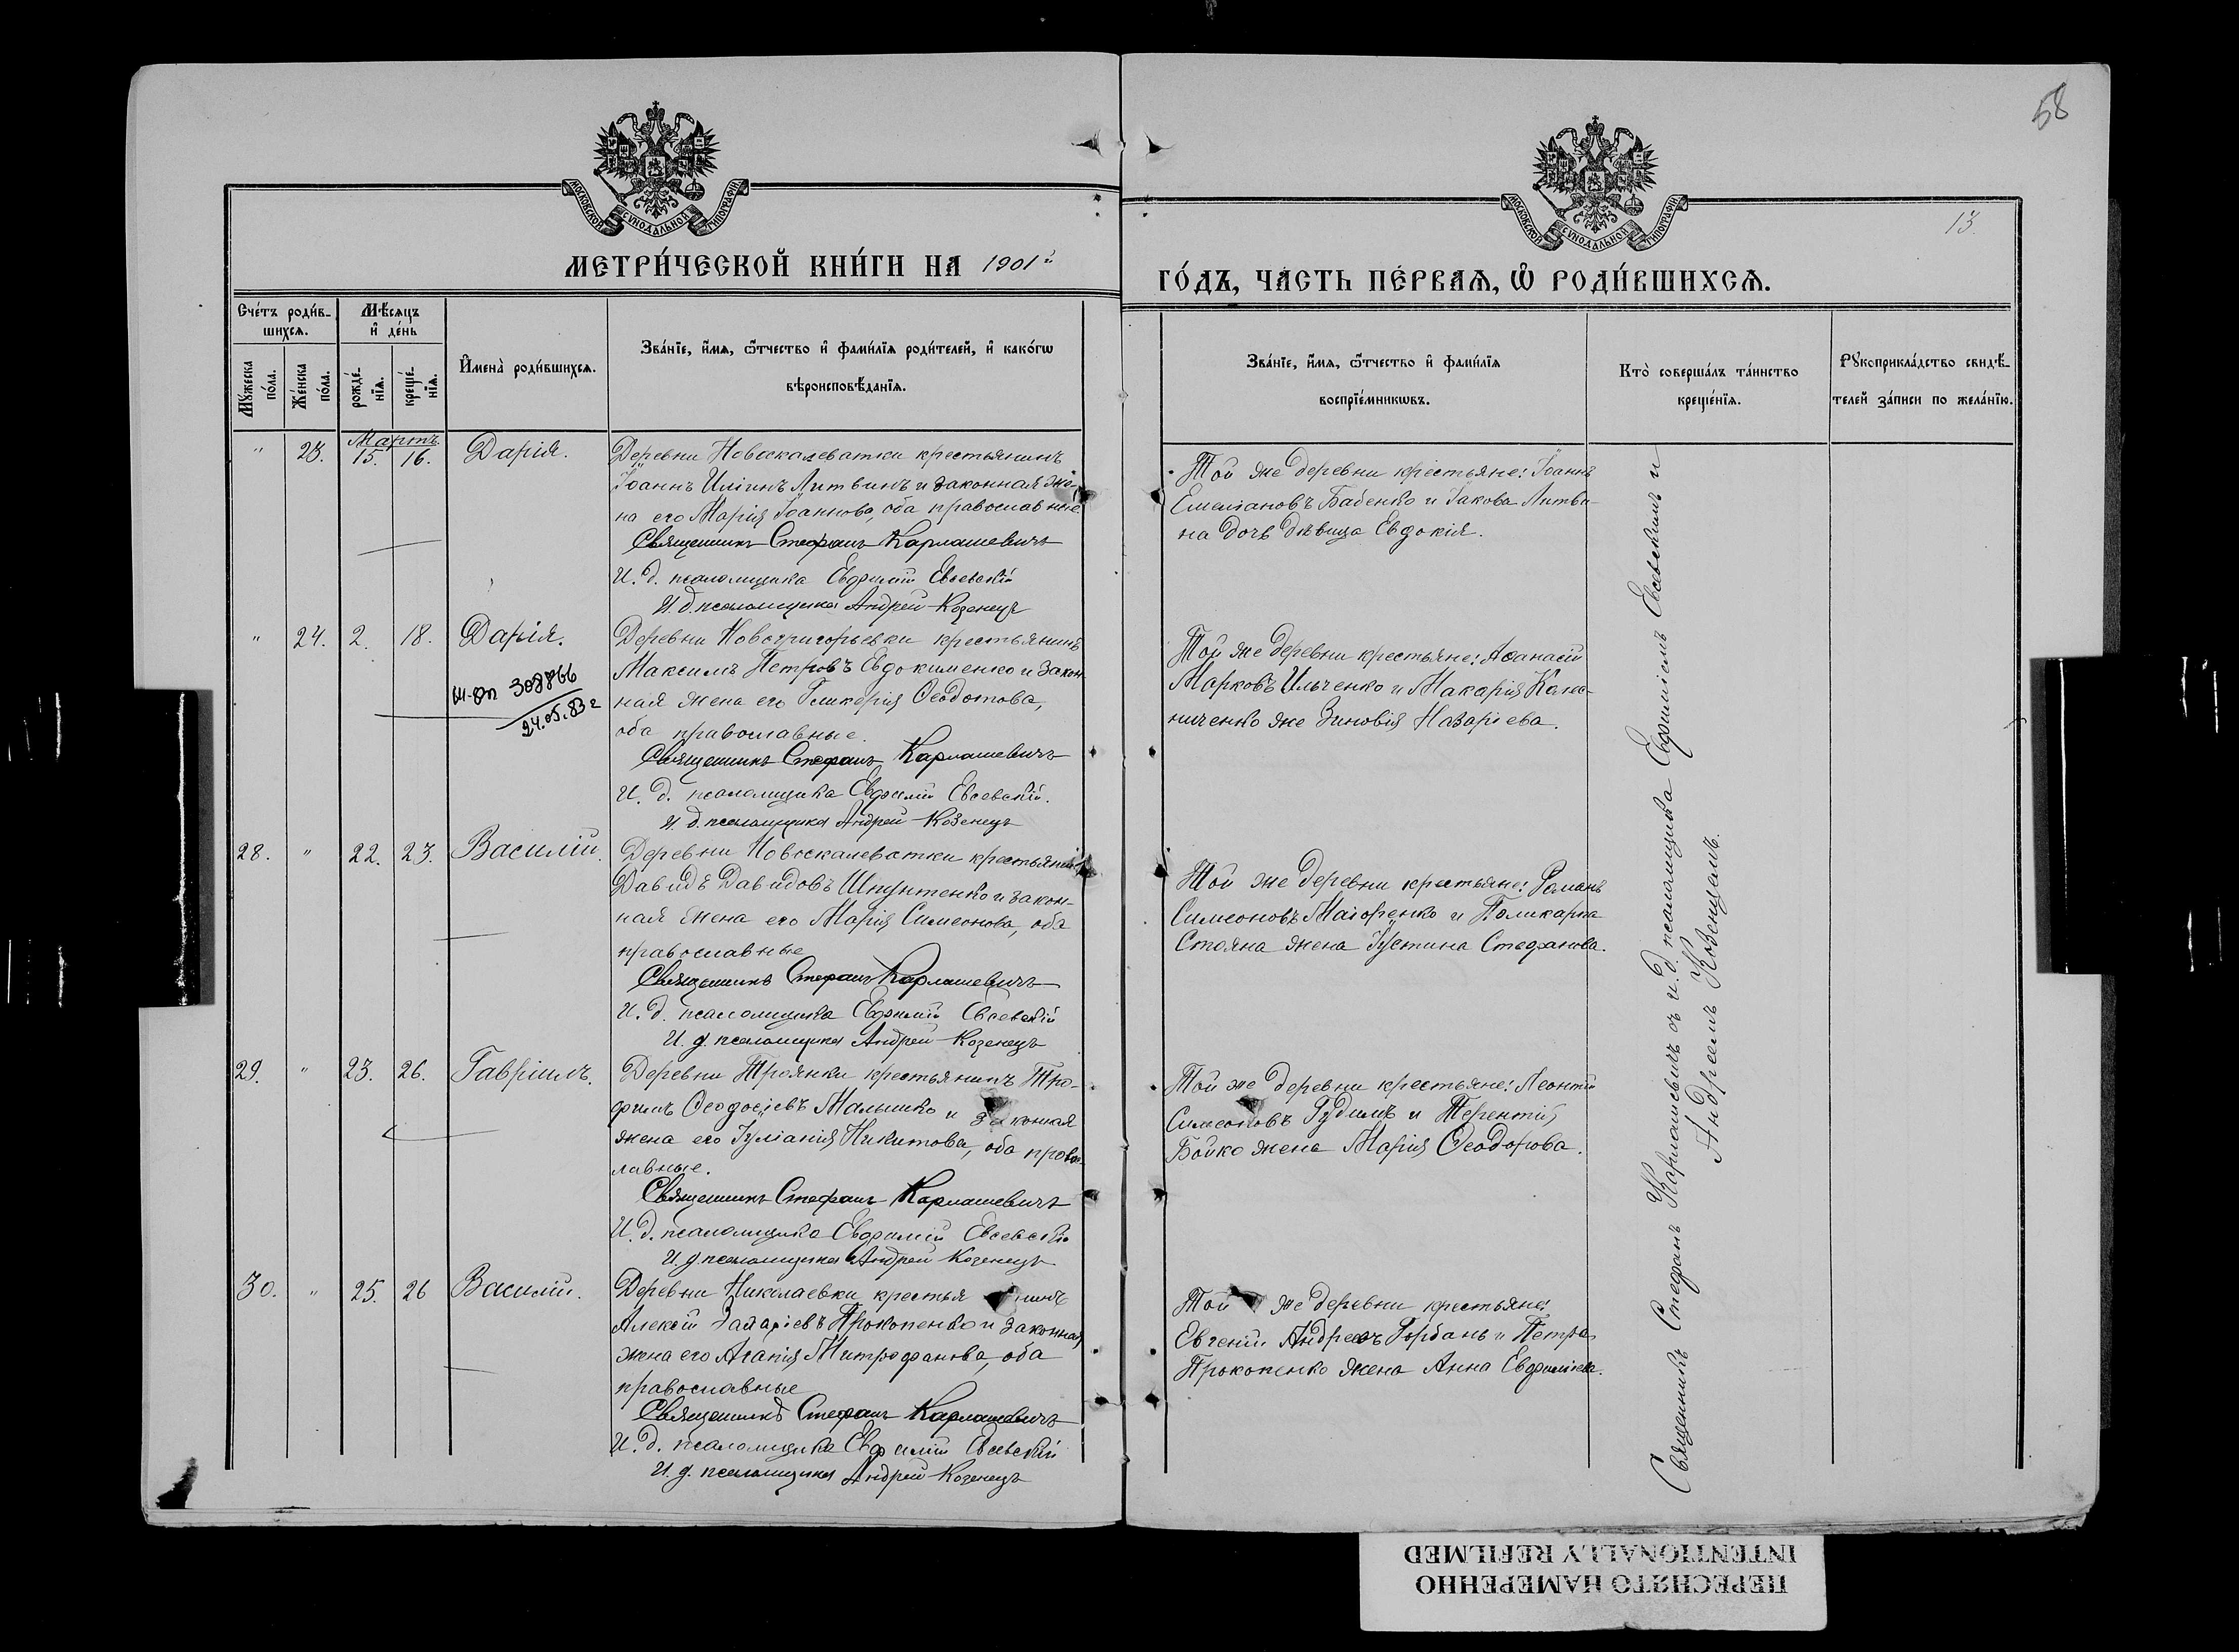 58
13.
МОСКОВСКОЙ СѴНОДАЛЬНОЙ ТИПОГРАФІИ
МОСКОВСКОЙ СѴНОДАЛЬНОЙ ТИПОГРАФІИ
МЕТРИ́ЧЕСКОЙ КНИ́ГИ НА 1901й
ГО́ДЪ, ЧА́СТЬ ПЕ́РВАѦ, Ѡ҆ РОДИ́ВШИХСѦ.
Сче́тъ роди́в-
шихсѧ.
Мꙋ́жеска
по́ла.
Же́нска
по́ла.
Мѣ́сѧцъ
и҆ де́нь
рожде́-
нїѧ.
креще́-
нїѧ.
И҆мена̀ роди́вшихсѧ.
Зва́нїе, и҆́мѧ, ѻ҆́тчество и҆ фами́лїѧ роди́телей, и҆ како́гѡ
вѣроисповѣ́данїѧ.
Зва́нїе, и҆́мѧ, ѻ҆́тчество и҆ фами́лїѧ
воспрїе́мникѡвъ.
Кто̀ соверша́лъ та́инство
креще́нїѧ.
Рꙋкоприкла́дство свидѣ́-
телей за́писи по жела́нїю.
Мартъ.
" 23. 15. 16. Дарія.
Деревни Новоскалеватки крестьянинъ
Іоаннъ Иліинъ Литвинъ и законная же-
на его Марія Іоаннова, оба православные
Священникъ Стефанъ Карлашевичъ
И. д. псаломщика Евфимій Евсевскій
И. д. псаломщика Андрей Козенецъ
Той же деревни крестьяне: Іоаннъ
Емеліановъ Бабенко и Іакова Литви-
на дочь дѣвица Евдокія.
" 24. 2. 18. Дарія.
308866
24.05.83 г
Деревни Новогригорьевки крестьянинъ
Максимъ Петровъ Евдокименко и закон-
ная жена его Гликерія Ѳеодотова,
оба православные.
Священникъ Стефанъ Карлашевичъ
И. д. псаломщика Евфимій Евсевскій.
И. д. псаломщика Андрей Козенецъ
Той же деревни крестьяне: Аѳанасій
Марковъ Ильченко и Макарія Кано-
ниченко жена Зиновія Назаріева.
28. " 22. 23. Василій.
Деревни Новоскалеватки крестьянинъ
Давидъ Давидовъ Шпунтенко и закон-
ная жена его Марія Симеонова, оба
православные
Священникъ Стефанъ Карлашевичъ
И. д. псаломщика Евфимій Евсевскій
И. д. псаломщика Андрей Козенецъ
Той же деревни крестьяне: Романъ
Симеоновъ Маіоренко и Поликарпа
Стояна жена Іустина Стефанова.
29. " 23. 26. Гавріилъ.
Деревни Троянки крестьянинъ Тро-
фимъ Ѳеодосіевъ Малышко и законная
жена его Іуліанія Никитова, оба правос-
лавные.
Священникъ Стефанъ Карлашевичъ
И. д. псаломщика Евфимій Евсевскій
И. д. псаломщика Андрей Козенецъ
Той же деревни крестьяне: Леонтій
Симеоновъ Рудимъ и Терентія
Бойко жена Марія Ѳеодорова.
30. " 25. 26 Василій.
Деревни Николаевки крестьянинъ
Алексій Захаріевъ Прокопенко и законная
жена его Агапія Митрофанова, оба
православные
Священникъ Стефанъ Карлашевичъ
И. д. псаломщика Евфимій Евсевскій
И. д. псаломщика Андрей Козенецъ
Той же деревни крестьяне:
Евгеній Андреевъ Горбань и Петра
Прокопенко жена Анна Евфиміева.
Священникъ Стефанъ Карлашевичъ съ и. д. псаломщика Евфиміемъ Евсевскимъ и
Андреемъ Козенцемъ.
ПЕРЕСНЯТО НАМЕРЕННО
INTENTIONALLY REFILMED